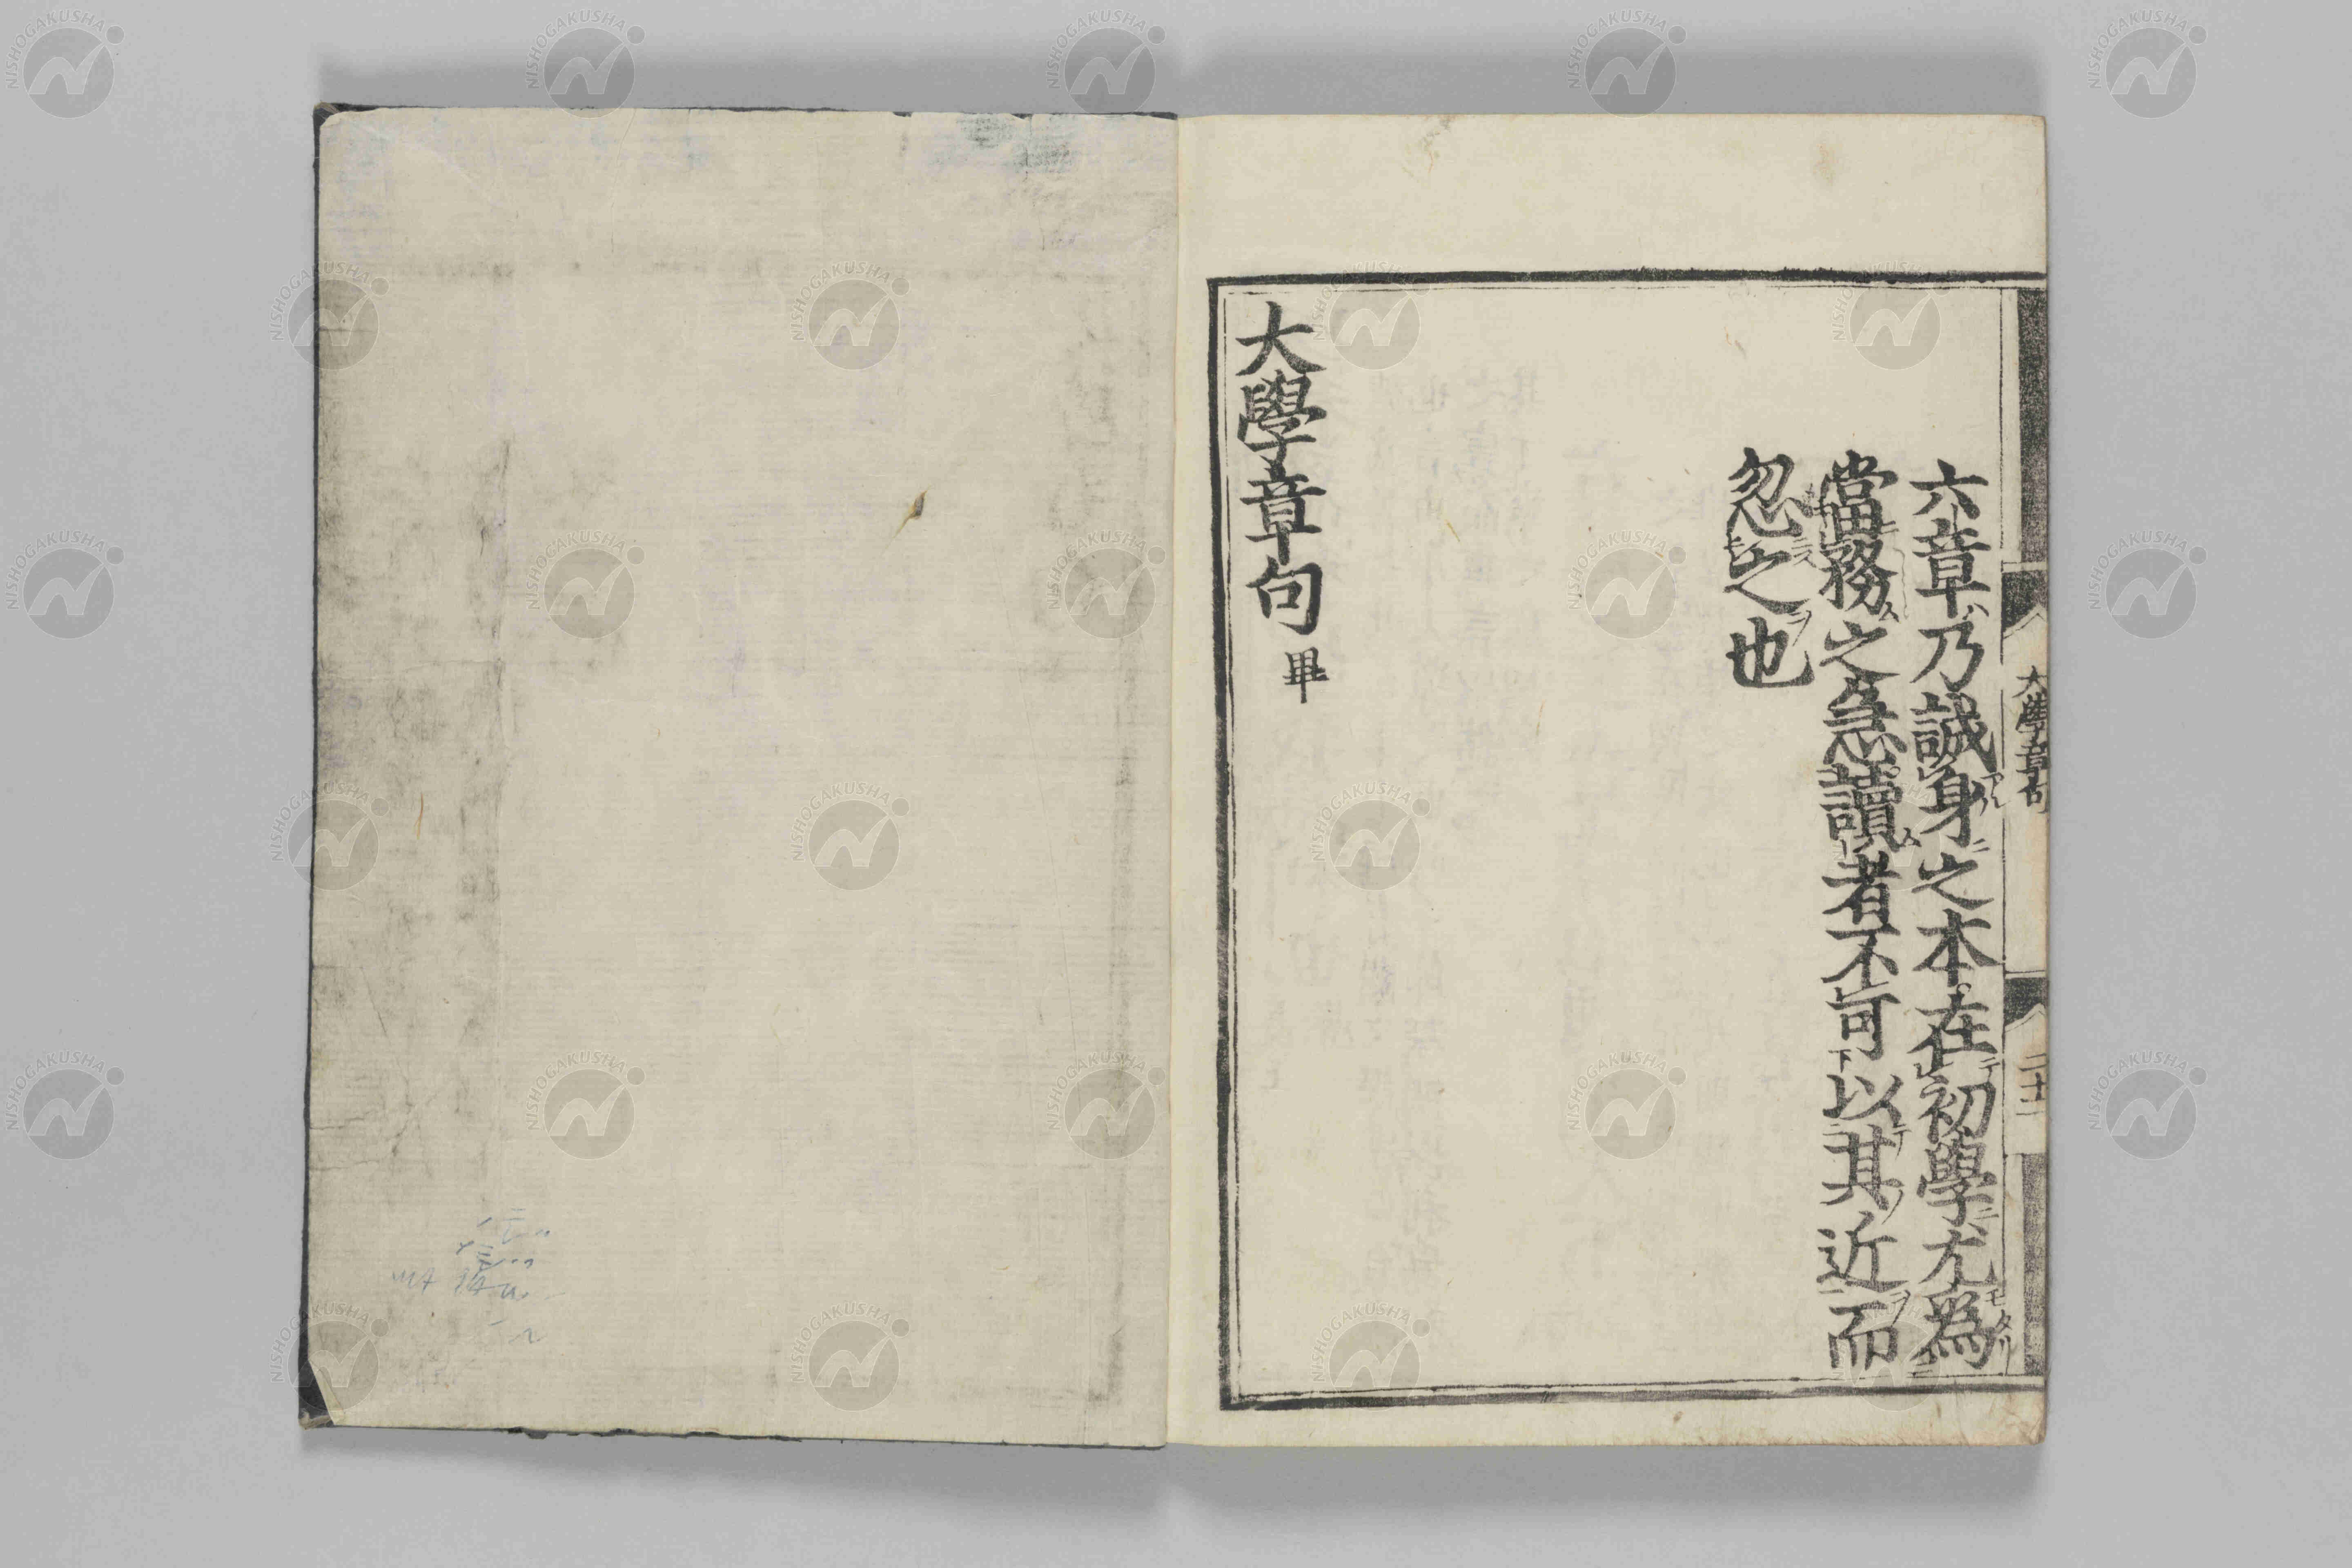 六章乃誠身之本在初學尤為
當務之急讀者不可以其近而
忽之也
大學章句畢
大學章句
二十一
NISHOGAKUSHA